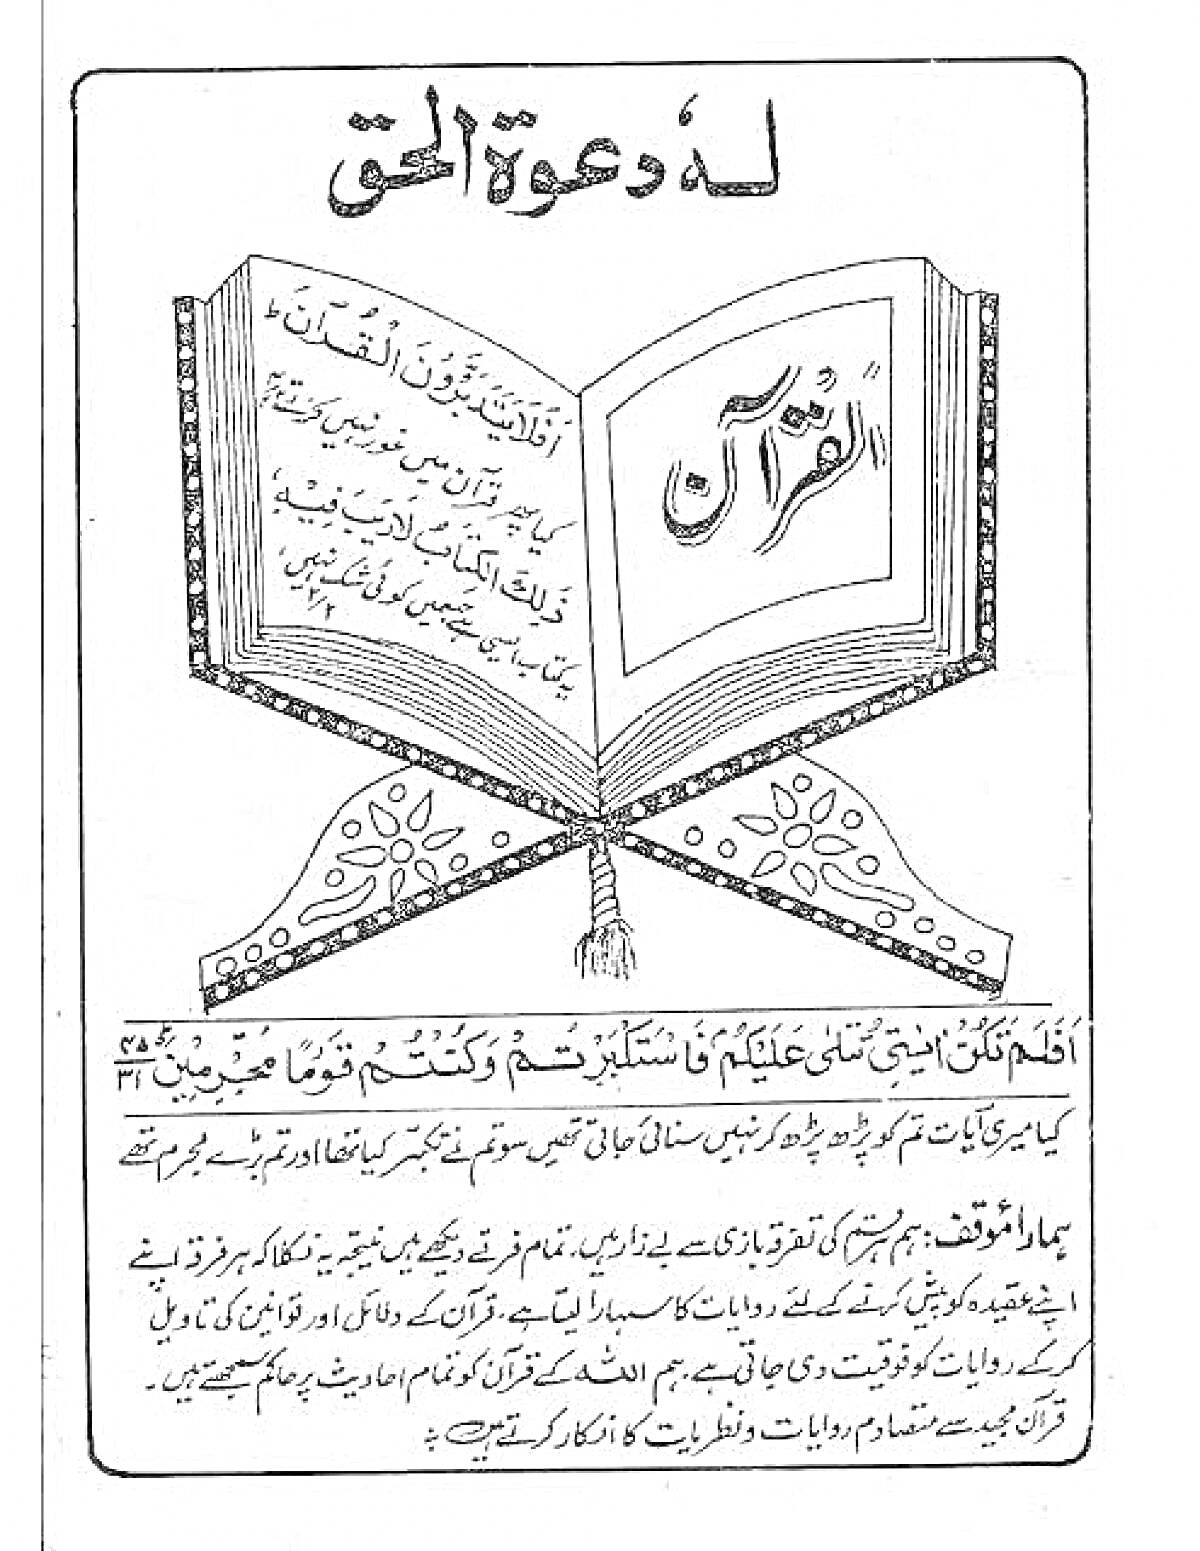 لہٗ دعوۃ الحق
القرآن
اَفَلَا یَتَدَبَّرُوْنَ الْقُرْآنَ ط
کیا پھر قرآن میں غور نہیں کرتے
ذٰلِکَ الْکِتَابُ لَارَیْبَ فِیْہِ
یہ کتاب ایسی ہے جسمیں کوئی شک نہیں
۲/۲
اَفَلَمْ تَکُنْ اٰیٰتِیْ تُتْلٰی عَلَیْکُمْ فَاسْتَکْبَرْتُمْ وَکُنْتُمْ قَوْمًا مُّجْرِمِیْنَ ۴۵/۳۱
کیا میری آیات تم کو پڑھ پڑھ کر نہیں سنائی جاتی تھیں سو تم نے تکبر کیا تھا اور تم بڑے مجرم تھے
ہمارا مؤقف: ہم ہر قسم کی تفرقہ بازی سے بے زار ہیں۔ تمام فرقے دیکھے ہیں نتیجہ یہ نکلا کہ ہر فرقہ اپنے
اپنے عقیدہ کو پیش کرنے کے لئے روایات کا سہارا لیتا ہے۔ قرآن کے دلائل اور قوانین کی تاویل
کر کے روایات کو فوقیت دی جاتی ہے۔ ہم اللہ کے قرآن کو تمام احادیث پر حاکم سمجھتے ہیں۔
قرآن مجید سے متصادم روایات و نظریات کا انکار کرتے ہیں